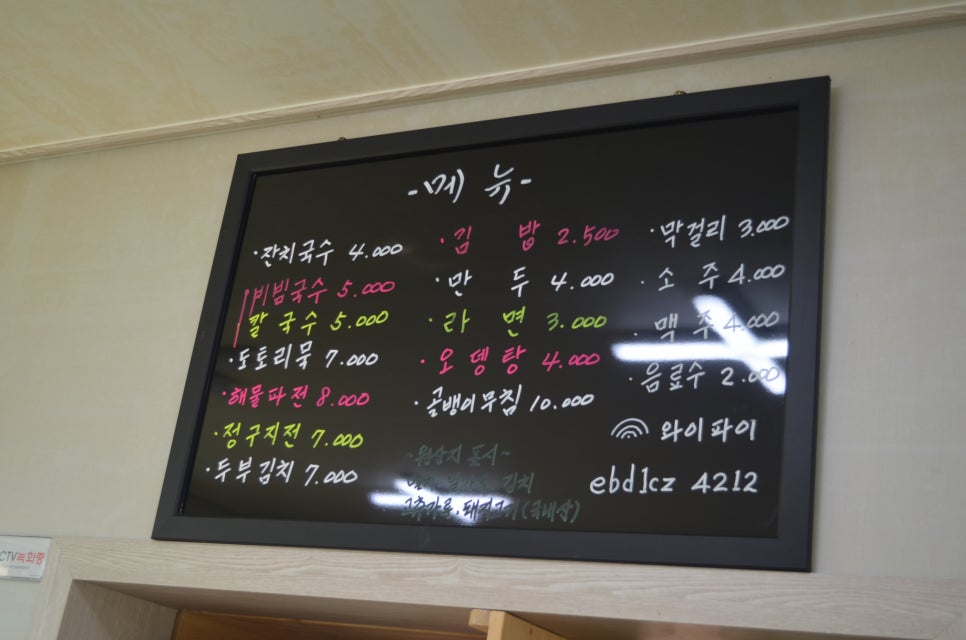 -메뉴-
·잔치국수 4.000
비빔국수 5.000
칼국수 5.000
·도토리묵 7.000
·해물파전 8.000
·정구지전 7.000
·두부김치 7.000
·김 밥 2.500
·만 두 4.000
·라 면 3.000
·오뎅탕 4.000
·골뱅이무침 10.000
~원산지 표시~
김치
고추가루, 돼지고기(국내산)
·막걸리 3.000
·소 주 4.000
·맥 주 4.000
·음료수 2.000
와이파이
ebd1cz 4212
CCTV녹화중